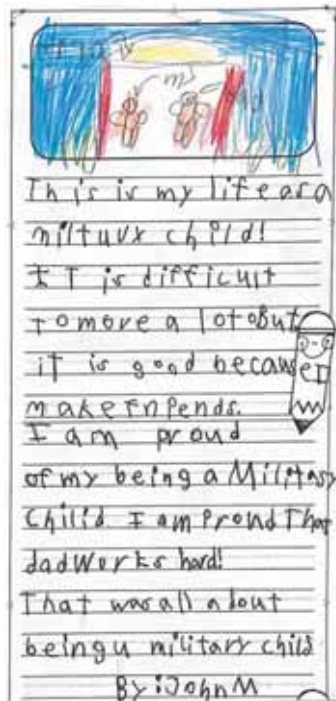 my
This is my life as a
miltuvx child!
IT is difficult
to move a lot. But
it is good becauseI
make frpends.
I am proud
of my being a Military
Chilid I am Proud That
dad works hard!
That was all about
being u military child
By: John M